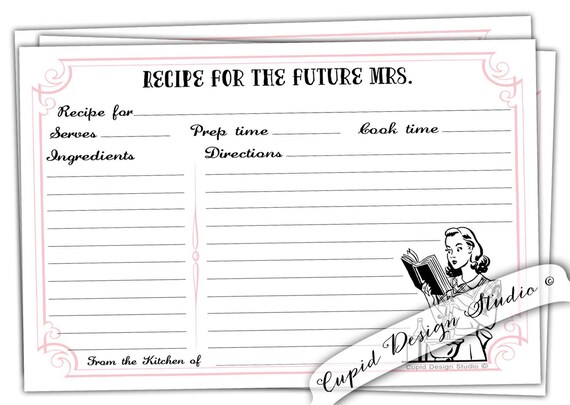 RECIPE FOR THE FUTURE MRS.
Recipe for
Serves Prep time Cook time
Ingredients Directions
From the Kitchen of
Cupid Design Studio ©
Cupid Design Studio ©